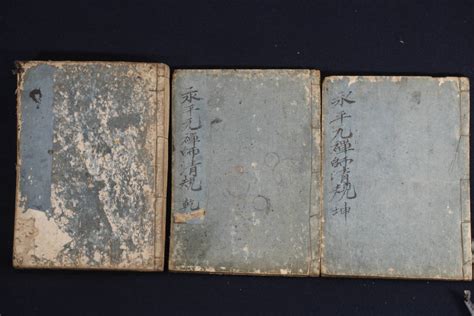 永平元禅師清規 乾
永平元禅師清規 坤